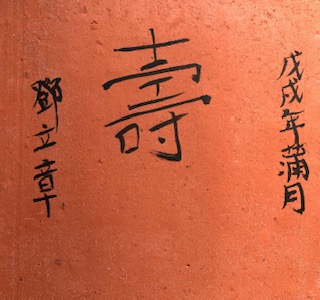 戊戌年蒲月
壽
鄧立章